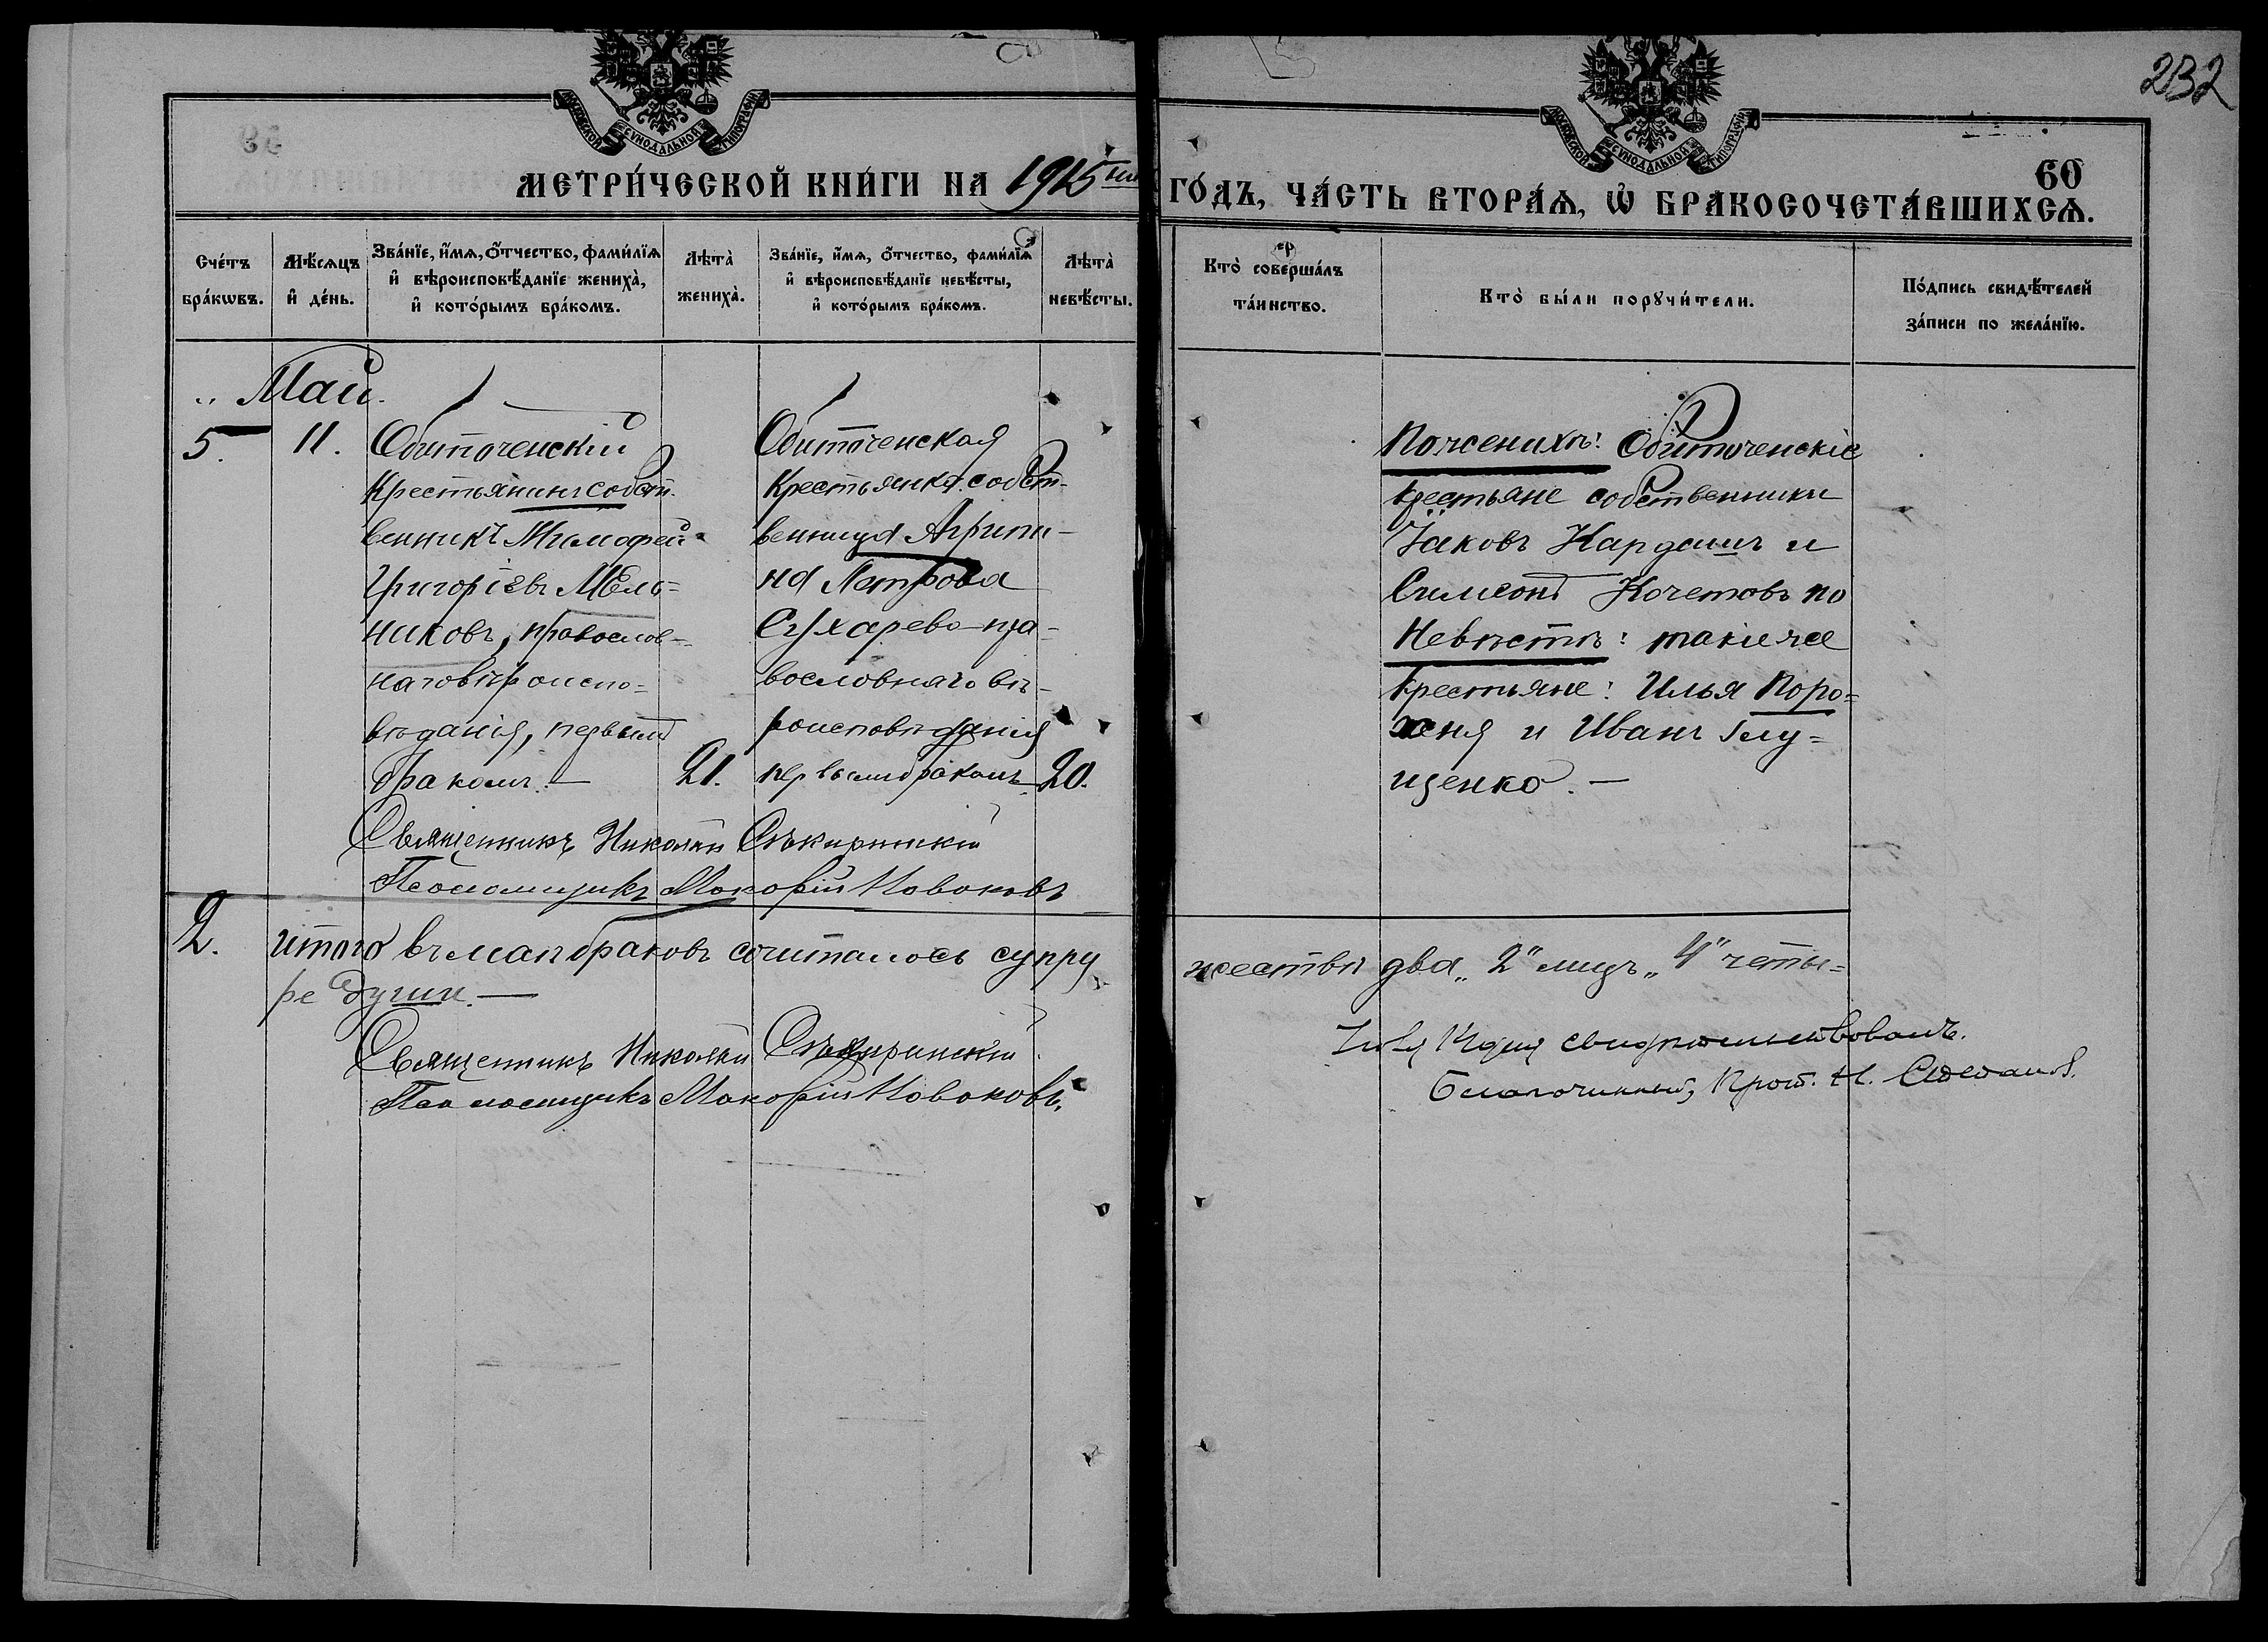 232
60
МОСКОВСКОЙ СѴНОДАЛЬНОЙ ТИПОГРАФІИ
МОСКОВСКОЙ СѴНОДАЛЬНОЙ ТИПОГРАФІИ
МЕТРИ́ЧЕСКОЙ КНИ́ГИ НА 1915
ГО́ДЪ, ЧА́СТЬ ВТОРА́Ѧ, Ѡ҆ БРАКОСОЧЕТА́ВШИХСѦ.
Сче́тъ бра́кѡвъ.
Мѣ́сѧцъ и҆ де́нь.
Зва́нїе, и҆́мѧ, ѻ҆́тчество, фами́лїѧ
и҆ вѣроисповѣ́данїе жениха̀,
и҆ кото́рымъ бра́комъ.
Лѣта̀ жениха̀.
Зва́нїе, и҆́мѧ, ѻ҆́тчество, фами́лїѧ
и҆ вѣроисповѣ́данїе невѣ́сты,
и҆ кото́рымъ бра́комъ.
Лѣта̀ невѣ́сты.
Кто̀ соверша́лъ
та́инство.
Кто̀ бы́ли порꙋчи́тели.
По́дпись свидѣ́телей
за́писи по жела́нїю.
Май.
5. 11.
Обиточенскій
крестьянинъ собст-
венникъ Тимофей
Григоріевъ Мель=
никовъ, православ-
наго вѣроиспо=
вѣданія, первымъ
бракомъ. — 21.
Обиточенская
крестьянка собст-
венница Агрипи-
на Петрова
Сухарева пра-
вославнаго вѣ-
роисповѣданія
первымъ бракомъ 20.
По женихѣ: Обиточенскіе
крестьяне собственники
Іаковъ Кардашъ и
Симеонъ Кочетовъ по
Невѣстѣ: такіе же
крестьяне: Илья Поро=
хня и Иванъ Глу=
щенко. —
Священникъ Николай Сѣкиринскій
Псаломщикъ Макарій Новаковъ
2. итого въ маѣ браковъ считалось супру
жествъ два „2" лицъ „4" четы=
ре души. —
Священникъ Николай Сѣкиринскій
Псаломщикъ Макарій Новаковъ.
свидѣтельствовалъ.
Благочинный, Прот. Н.